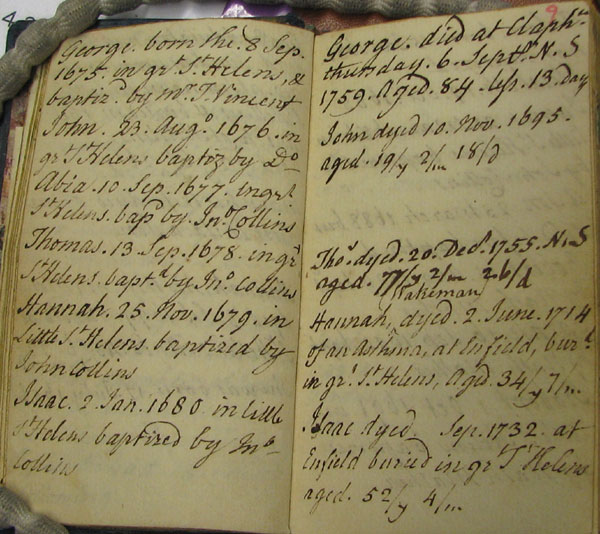 George. born the 8 Sep.
1675. in grt. St. Helens, &
baptizd. by mr. T. Vincent
John. 23. Augo. 1676. in
gr St Helens baptiz by Do
Abia. 10. Sep. 1677. in grt.
St Helens. bapd by Jno. Collins
Thomas. 13 Sep. 1678. in gr
St Helens. bapt.d by Jno. Collins
Hannah. 25. Nov. 1679. in
Little St. Helens. baptized by
John Collins
Isaac. 2 Jan. 1680 in Little
St Helens baptized by Jno
Collins
9
George. died at Claphm.
thursday. 6. Septbr. N. S
1759. Aged. 84. less. 13. Day
John dyed 10. Nov. 1695.
aged. 19/y 2/m 18/d
Thos. dyed. 20. Decr. 1755. N. S
aged. 77/y 2/m 26/d
Wakeman
Hannah, dyed. 2. June. 1714
of an Asthma, at Enfield, burd.
in grt. St. Helens, Aged. 34/y 7/m.
Isaac dyed Sep. 1732. at
Enfield buried in gr St Helens
aged. 52/y 4/m.